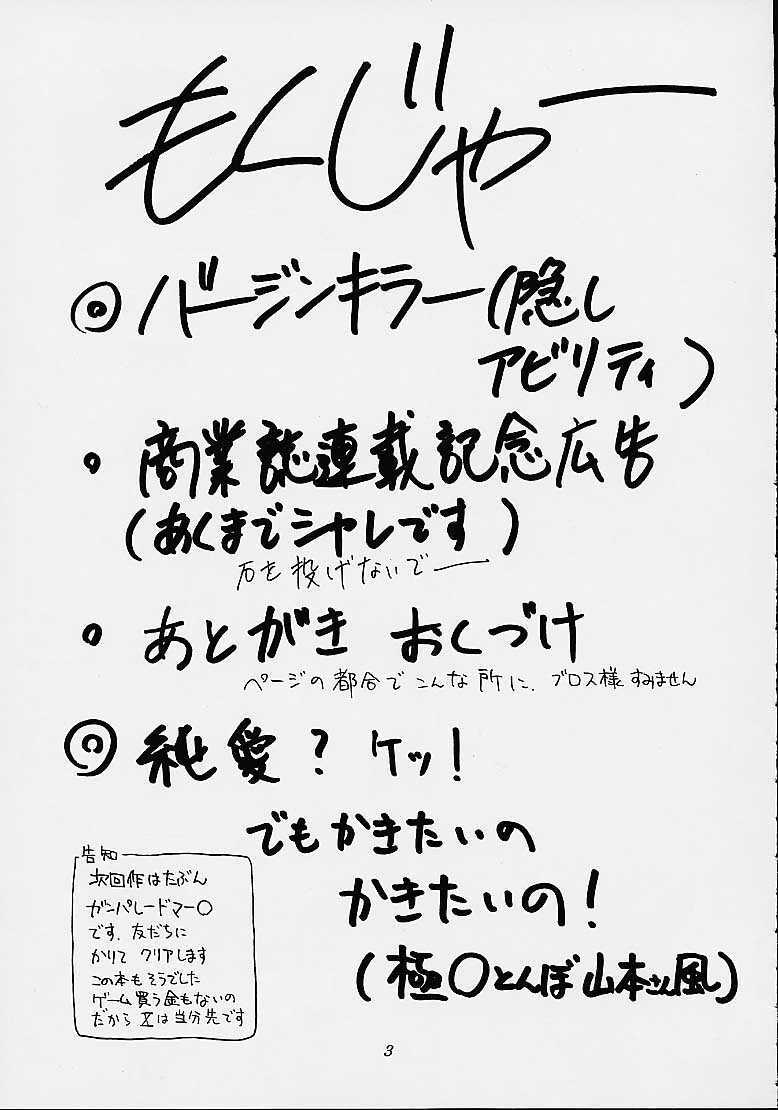 もくじゃー
◎バージンキラー(隠し
アビリティ)
○商業誌連載記念広告
(あくまでシャレです)
石を投げないでー
○あとがき おくづけ
ページの都合でこんな所に、ブロス様すみません
◎純愛？ケッ！
でもかきたいの
かきたいの！
(極〇とんぼ山本さん風)
告知
次回作はたぶん
ガンパレードマー〇
です。友だちに
かりてクリアします
この本もそうでした
ゲーム買う金もないの
だからXは当分先です
3